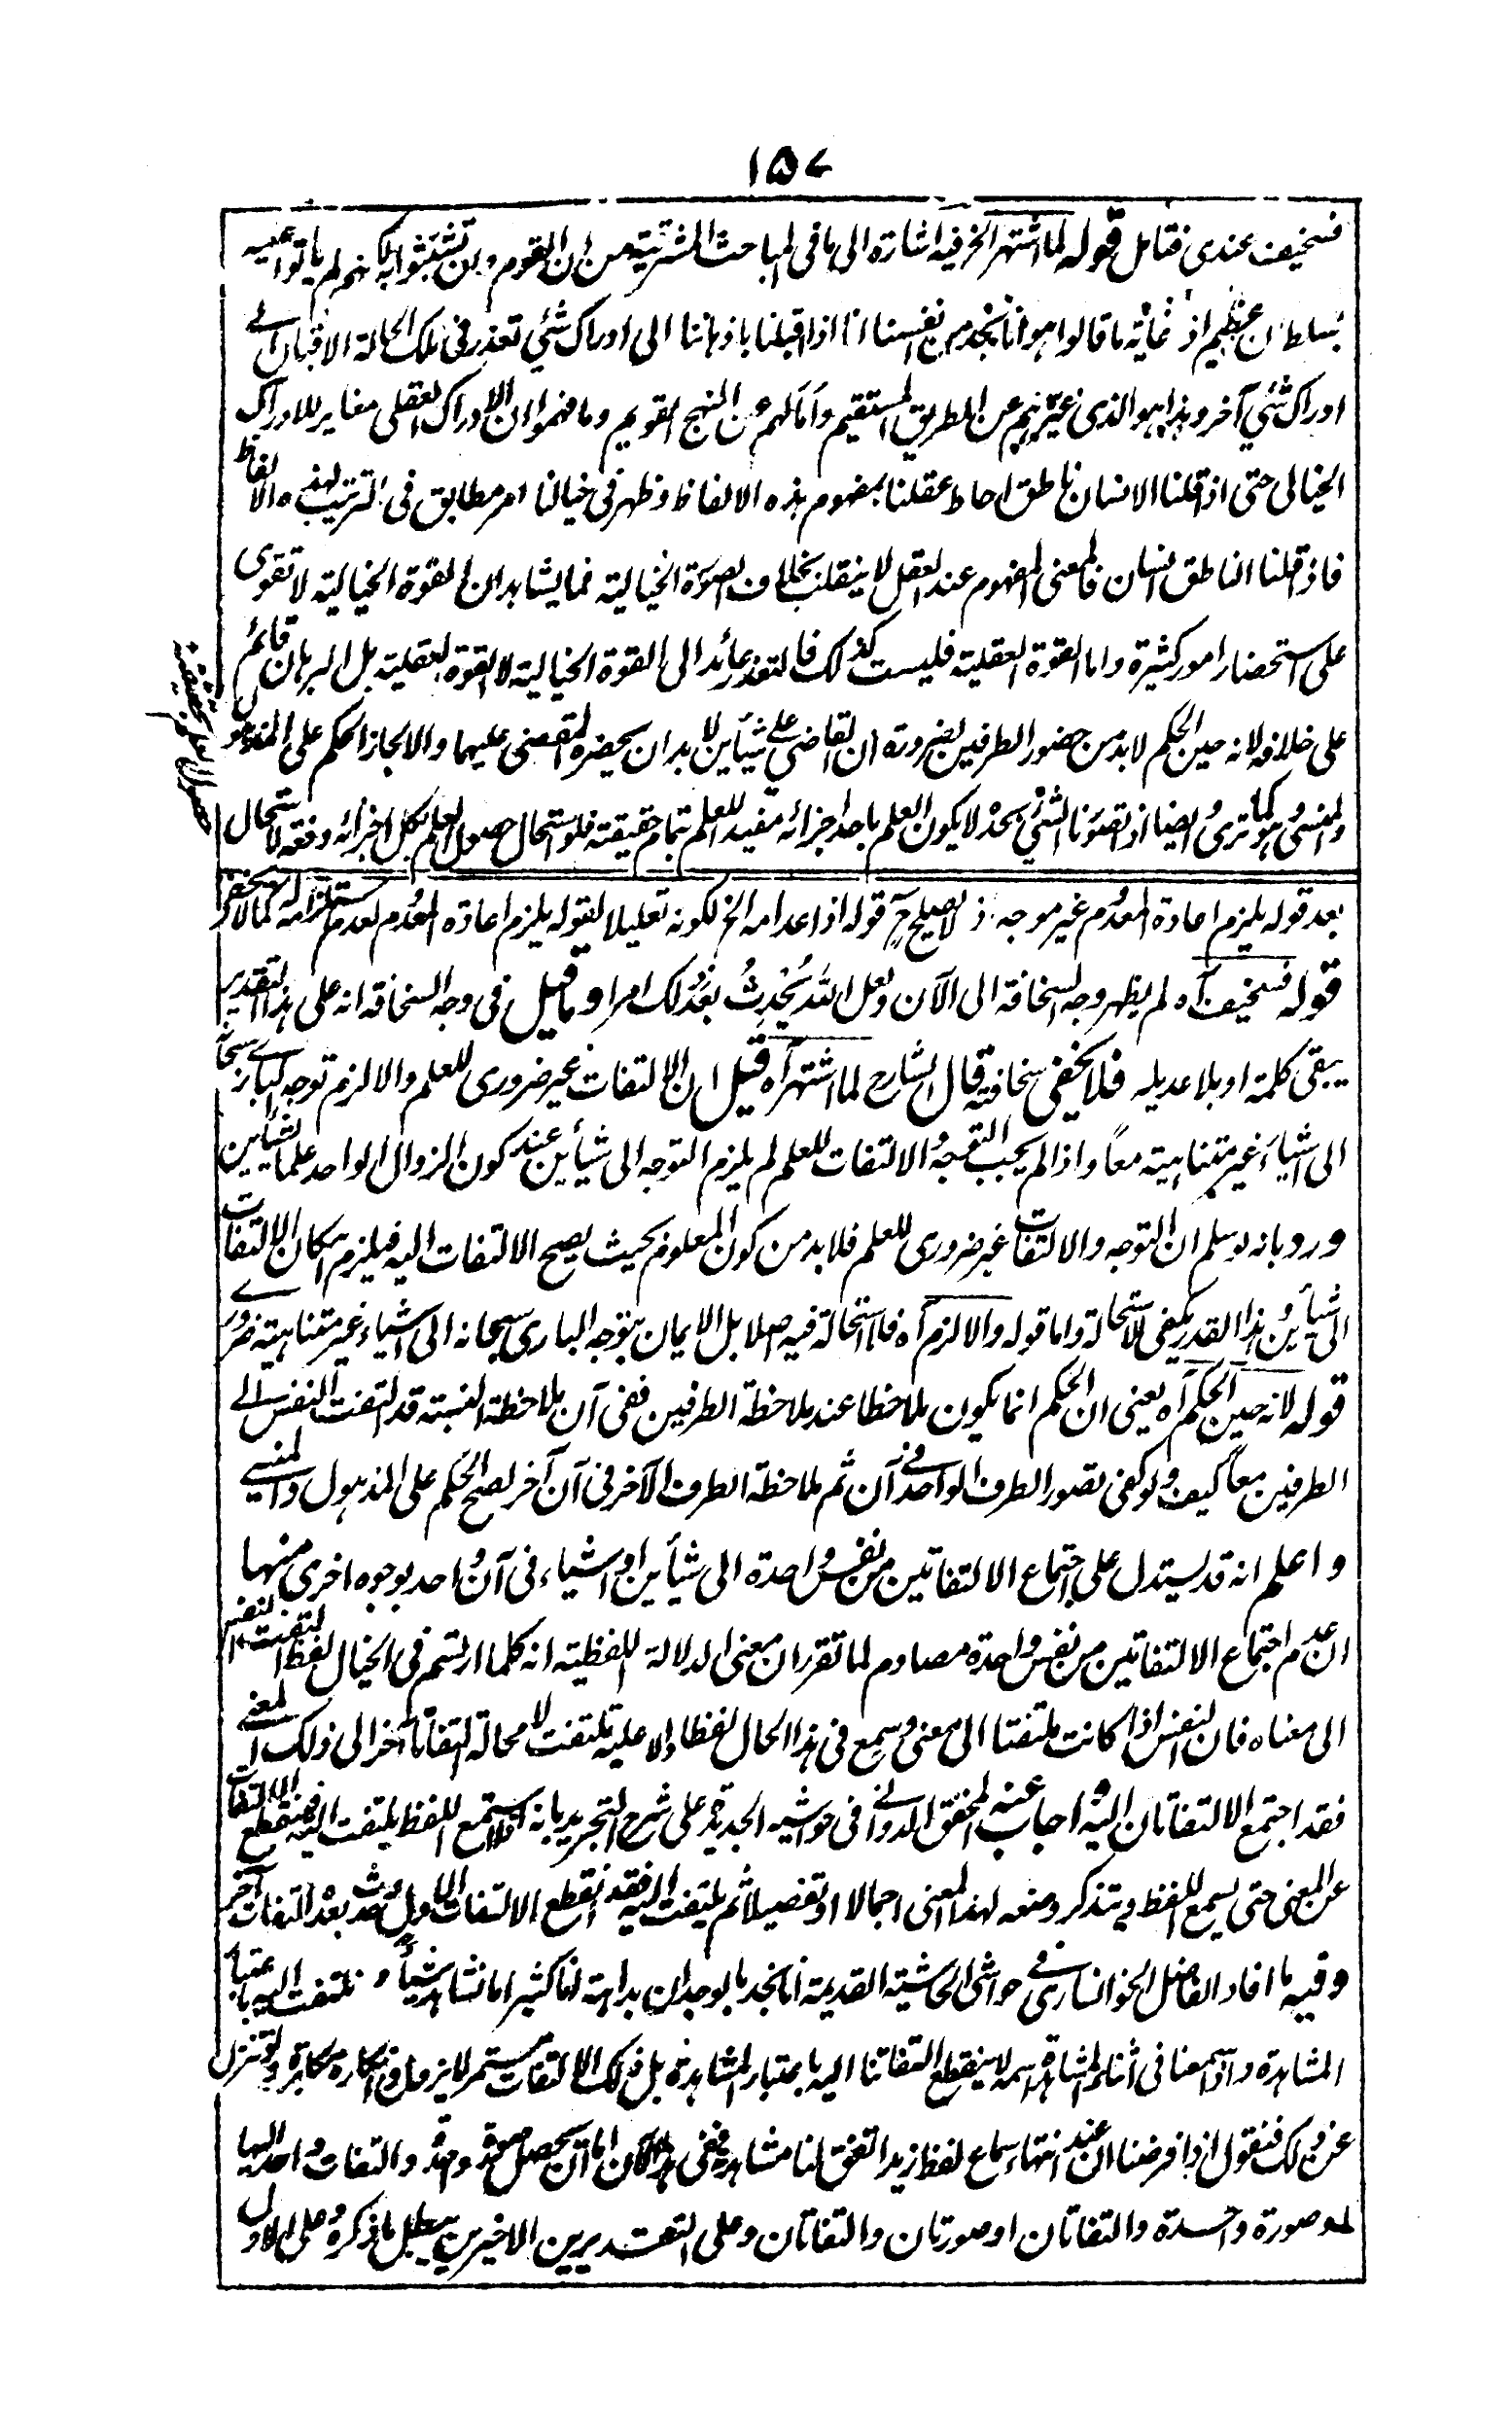 ١٥٧
فسخيف عندى فتامل قوله لما اشتهر الخ فيه اشارة الى ما فى المباحث المشرقية من ان القوم وان تشبثوا به لكنهم لم ياتوا عليه
بسلطان عظيم اذ غاية ما قالوا هو انا نجد من انفسنا انا اذا اقبلنا باذهاننا الى ادراك شئ تعذر فى تلك الحالة الاقبال الى
ادراك شئ آخر وهذا هو الذى غيرهم عن الطريق المستقيم وأمالهم عن المنهج القويم وما فهموا ان الادراك العقلى مغاير للادراك
الخيالى حتى اذ قلنا الانسان ناطق احاط عقلنا بمفهوم هذه الالفاظ وظهر فى خيالنا امر مطابق فى الترتيب لهذه الالفاظ
فاذ قلنا الناطق انسان فالمعنى المفهوم عند العقل لا ينقلب بخلاف الصورة الخيالية فما يشاهد ان القوة الخيالية لا تقوى
على استحضار امور كثيرة واما القوة العقلية فليست كذلك فالتعذر عائد الى القوة الخيالية لا القوة العقلية بل البرهان قائم
على خلافه لانه حين الحكم لا بد من حضور الطرفين لضرورة ان القاضى على شيأين لا بد ان يحضره المقضى عليهما والا لجاز الحكم على المذهول
والمنسى هو كما ترى وايضا اذ تصورنا الشئ بحده لا يكون العلم باحد اجزائه مفيد للعلم بتمام حقيقته فلو استحال حصول العلم بكل اجزائه دفعة لاستحال
حصول العلم بحقيقته
بعد قوله يلزم اعادة المعدوم غير موجه اذ لا يصلح ح قوله اذا عدامه الخ لكونه تعليلا لقوله يلزم اعادة المعدوم لعدم استلزامه له كما لا يخفى
قوله فسخيف آه لم يظهر وجه السخافة الى الآن ولعل الله يحدث بعد ذلك امرا وما قيل فى وجه السخافة انه على هذا التقدير
يبقى كلمة او بلا عديله فلا يخفى سخافته قال الشارح لما اشتهر آه قيل ان الالتفات غير ضرورى للعلم والا لزم توجه البارى سبحانه
الى اشياء غير متناهية معاً واذا لم يجب التوجه والالتفات للعلم لم يلزم التوجه الى شيأين عند كون الزوال الواحد علما لشيأين
ورد بانه لو سلم ان التوجه والالتفات غير ضرورى للعلم فلا بد من كون المعلوم بحيث يصح الالتفات اليه فيلزم امكان الالتفات
الى شيأين وهذا القدر يكفى للاستحالة واما قوله والا لزم آه فلا استحالة فيه اصلا بل الايمان بتوجه البارى سبحانه الى اشياء غير متناهية ضرورى
قوله لانه حين الحكم آه يعنى ان الحكم انما يكون ملاحظا عند ملاحظة الطرفين ففى آن ملاحظة النسبة قد التفت النفس الى
الطرفين معاً كيف ولو كفى تصور الطرف الواحد فى آن ثم ملاحظة الطرف الآخر فى آن آخر لصح الحكم على المذهول والمنسى
واعلم انه قد يستدل على اجتماع الالتفاتين من نفس واحدة الى شيأين او اشياء فى آن واحد بوجوه اخرى منها
ان عدم اجتماع الالتفاتين من نفس واحدة مصادم لما تقرر ان معنى الدلالة اللفظية انه كلما ارتسم فى الخيال لفظ التفت النفس
الى معناه فان النفس اذا كانت ملتفتا الى معنى وسمع فى هذا الحال لفظا دالا عليه تلتفت لا محالة التفاتا آخر الى ذلك المعنى
فقد اجتمع الالتفاتان اليه واجاب عنه المحقق الدوانى فى حواشيه الجديدة على شرح التجريد بانه اذا استمع اللفظ يلتفت اليه فينقطع الالتفات
عن المعنى حتى يسمع اللفظ ويتذكر وضعه لهذا المعنى اجمالا او تفصيلا ثم يلتفت اليه فقد انقطع الالتفات الاول وحدث بعده التفات آخر
وفيه ما افاد الفاضل الخوانسارى فى حواشى الحاشية القديمة انا نجد بالوجدان بداهة انا كثيرا ما نشاهد شيأ ونلتفت اليه باعتبار
المشاهدة واذا سمعنا فى اثناء المشاهدة اسمه لا ينقطع التفاتنا اليه باعتبار المشاهدة بل ذلك الالتفات مستمر لا يزول وانكاره مكابرة ولو تنزل
عن ذلك فنقول اذا فرضنا ان عند انتهاء سماع لفظ زيد اتفق لنا مشاهدته ففى هذا الآن اما ان يحصل صورة واحدة والتفات واحد اليها
او صورة واحدة والتفاتان او صورتان والتفاتان وعلى التقديرين الاخيرين يبطل ما ذكره وعلى الاول